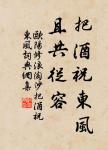 把酒祝東風
且共從容
歐陽修浪淘沙把酒祝
東風詞典網集